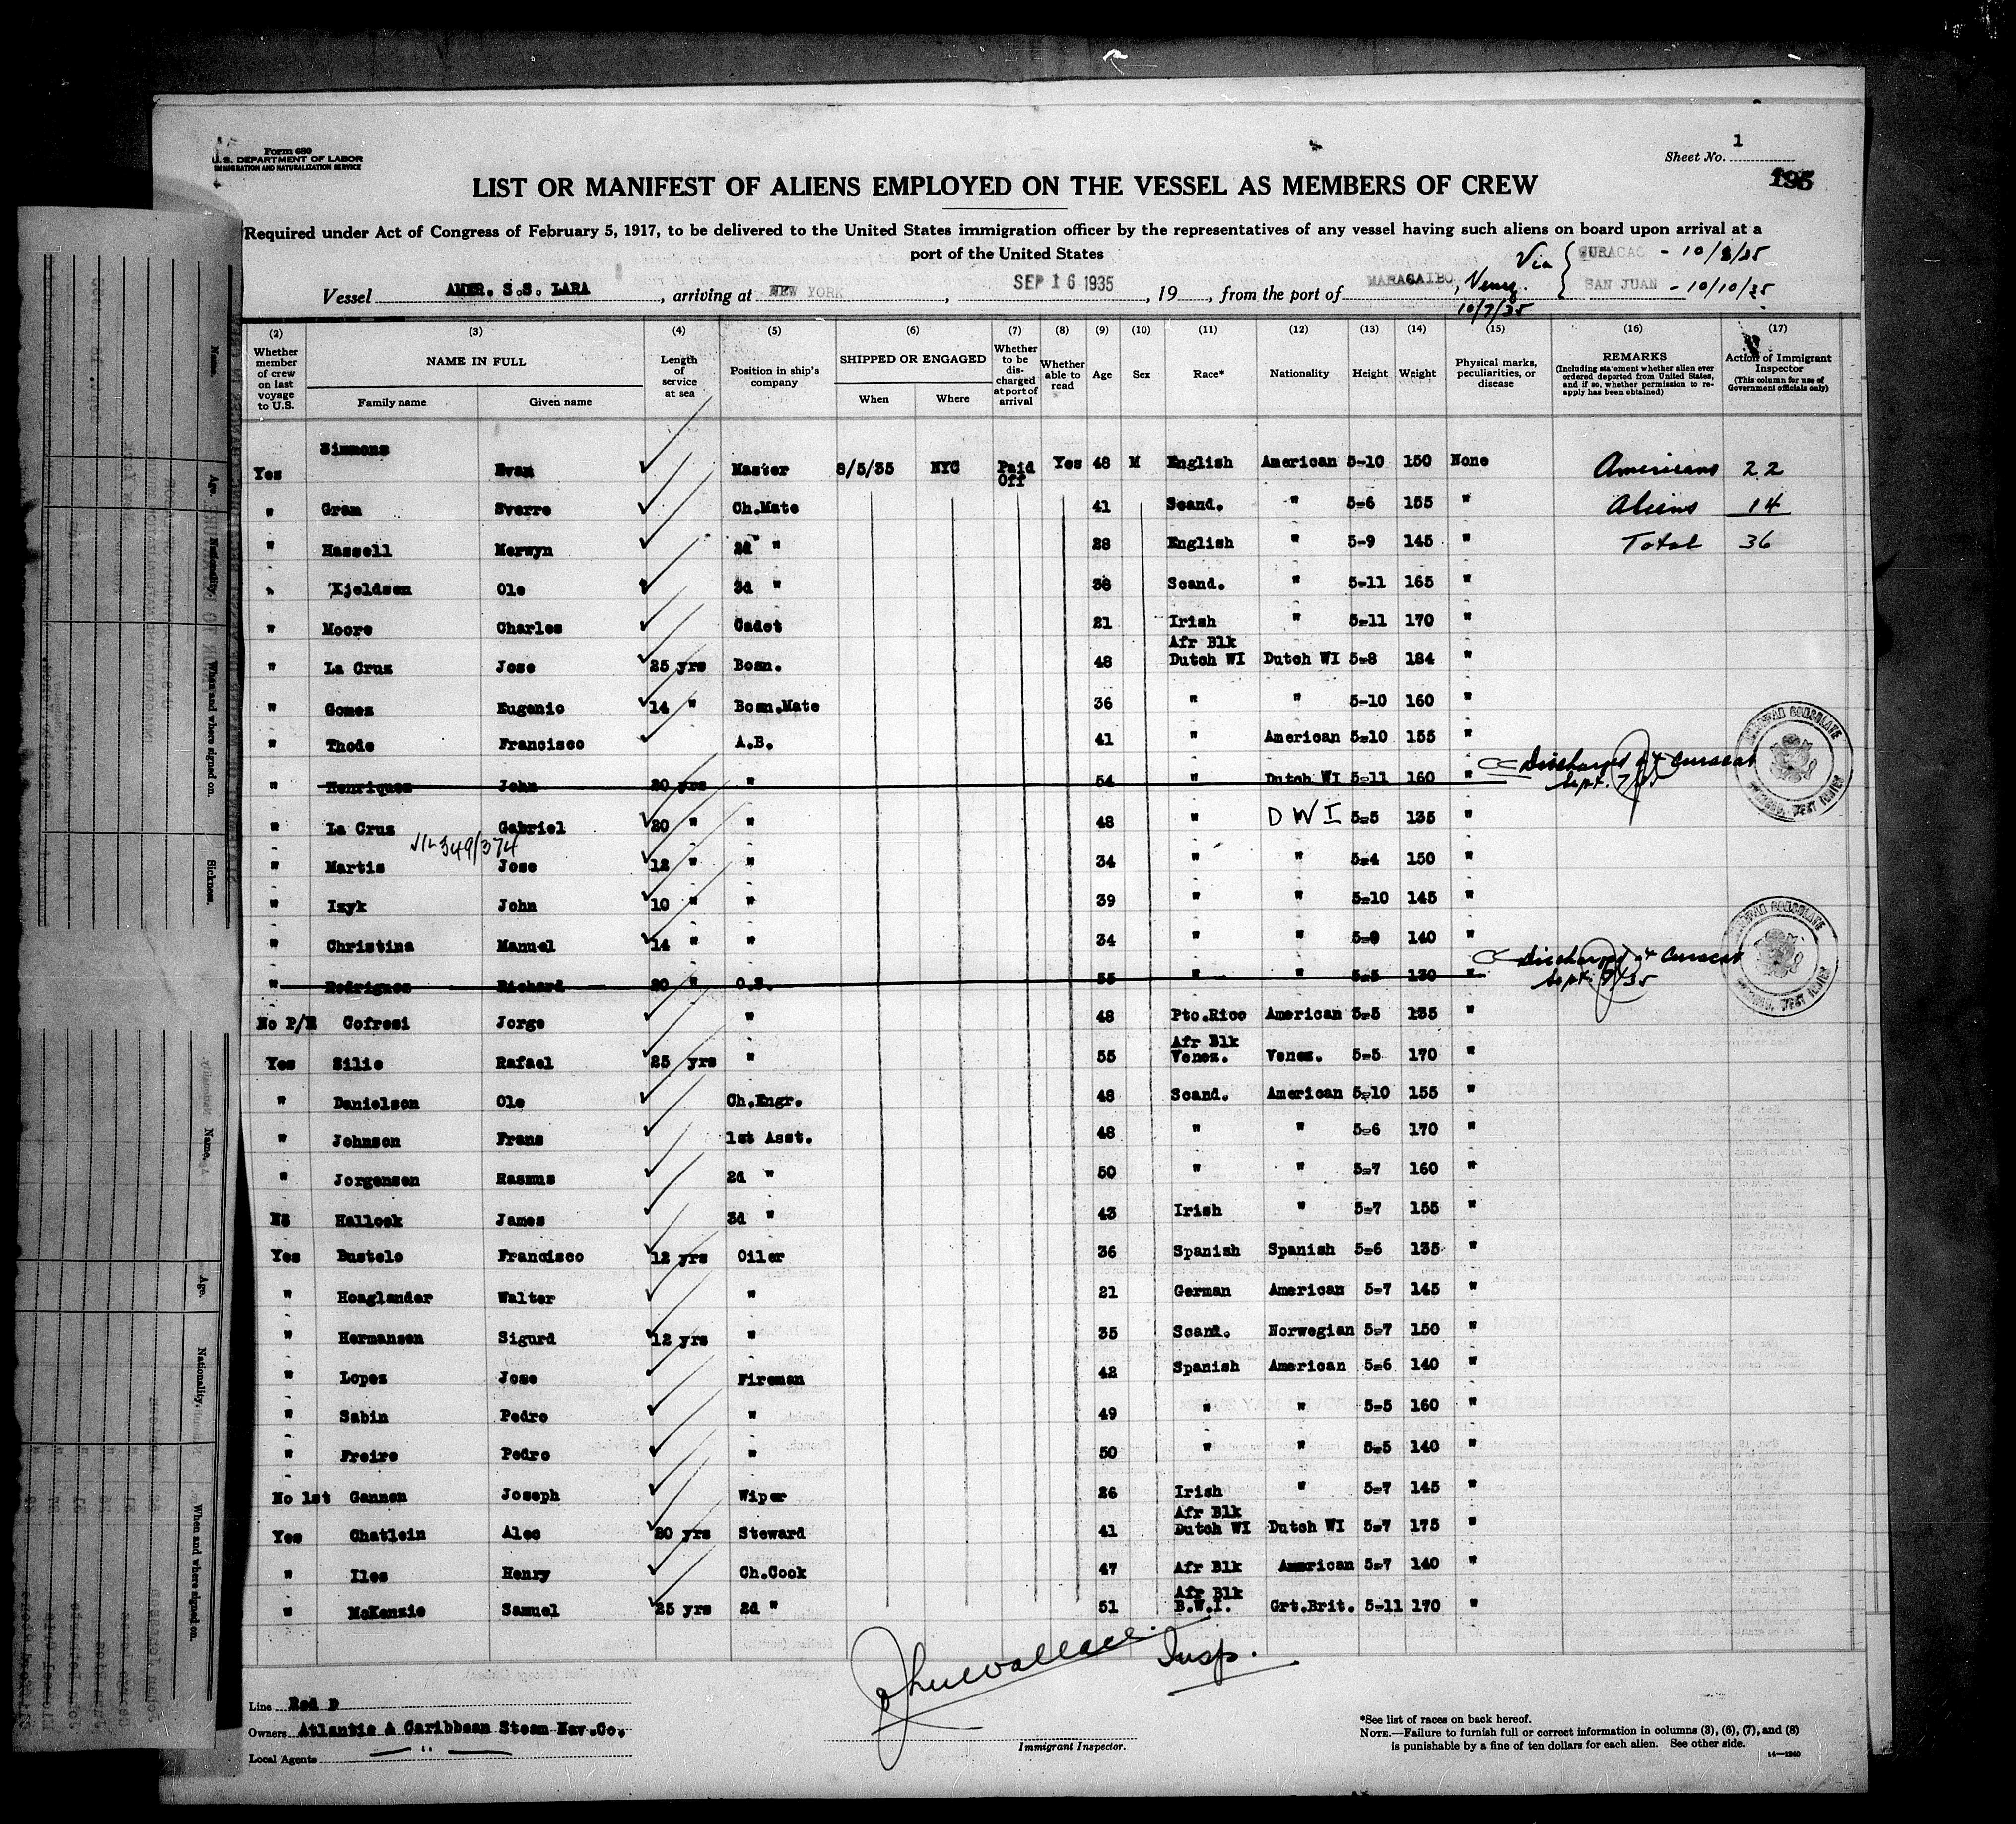 Form 680
U.S. DEPARTMENT OF LABOR
IMMIGRATION AND NATURALIZATION SERVICE
Sheet No. 1
195
LIST OR MANIFEST OF ALIENS EMPLOYED ON THE VESSEL AS MEMBERS OF CREW
Required under Act of Congress of February 5, 1917, to be delivered to the United States immigration officer by the representatives of any vessel having such aliens on board upon arrival at a
port of the United States
Via { CURACAO - 10/8/35
SAN JUAN - 10/10/35
Vessel AMER. S.S. LARA, arriving at NEW YORK, SEP 16 1935, 19, from the port of MARACAIBO, Venez.
10/7/35
(2) (3) (4) (5) (6) (7) (8) (9) (10) (11) (12) (13) (14) (15) (16) (17)
Whether member of crew on last voyage to U.S.
NAME IN FULL
Family name Given name
Length of service at sea
Position in ship's company
SHIPPED OR ENGAGED
When Where
Whether to be discharged at port of arrival
Whether able to read
Age
Sex
Race*
Nationality
Height
Weight
Physical marks, peculiarities, or disease
REMARKS
(Including statement whether alien ever ordered deported from United States, and if so, whether permission to reapply has been obtained)
Action of Immigrant Inspector
(This column for use of Government officials only)
Yes Simmons Evan Master 8/5/35 NYC Paid Off Yes 48 M English American 5-10 150 None Americans 22
" Gram Sverre Ch.Mate 41 Scand. " 5-6 155 " Aliens 14
" Hassell Merwyn 2d " 28 English " 5-9 145 " Total 36
" Kjeldsen Ole 3d " 38 Scand. " 5-11 165 "
" Moore Charles Cadet 21 Irish " 5-11 170 "
" La Cruz Jose 25 yrs Bosn. 48 Afr Blk Dutch WI Dutch WI 5-8 184 "
" Gomez Eugenio 14 " Bosn.Mate 36 " " 5-10 160 "
" Thode Francisco A.B. 41 " American 5-10 155 "
" Henriquez John 20 yrs " 54 " Dutch WI 5-11 160 " Discharged at Curacao
Sept. 7/35
" La Cruz Gabriel 20 " " 48 " D W I 5-5 135 "
349/374
" Martis Jose 12 " " 34 " " 5-4 150 "
" Izyk John 10 " " 39 " " 5-10 145 "
" Christina Manuel 14 " " 34 " " 5-8 140 "
" Rodriguez Richard 20 " O.S. 55 " " 5-5 130 " Discharged at Curacao
Sept. 7/35
No P/R Cofresi Jorge " 48 Pto.Rico American 5-5 135 "
Yes Silie Rafael 25 yrs " 55 Afr Blk Venez. Venez. 5-5 170 "
" Danielson Ole Ch.Engr. 48 Scand. American 5-10 155 "
" Johnson Frans 1st Asst. 48 " " 5-6 170 "
" Jorgensen Rasmus 2d " 50 " " 5-7 160 "
Hallock James 3d " 43 Irish " 5-7 155 "
Yes Bustelo Francisco 12 yrs Oiler 36 Spanish Spanish 5-6 135 "
" Hoaglander Walter " 21 German American 5-7 145 "
" Hermansen Sigurd 12 yrs " 35 Scand. Norwegian 5-7 150 "
" Lopez Jose Fireman 42 Spanish American 5-6 140 "
" Sabin Pedro " 49 " " 5-5 160 "
" Freire Pedro " 50 " " 5-5 140 "
No 1st Gannen Joseph Wiper 26 Irish " 5-7 145 "
Yes Chatlein Alec 20 yrs Steward 41 Afr Blk Dutch WI Dutch WI 5-7 175 "
" Iles Henry Ch.Cook 47 Afr Blk American 5-7 140 "
" McKenzie Samuel 25 yrs 2d " 51 Afr Blk B.W.I. Grt.Brit. 5-11 170 "
Insp.
Line Red D
Owners Atlantic & Caribbean Steam Nav.Co.
Local Agents "
Immigrant Inspector.
*See list of races on back hereof.
NOTE.—Failure to furnish full or correct information in columns (3), (6), (7), and (8)
is punishable by a fine of ten dollars for each alien. See other side.
14—1240
Name. Age. Nationality. When and where signed on. Sickness.
Name. Age. Nationality. When and where signed on.